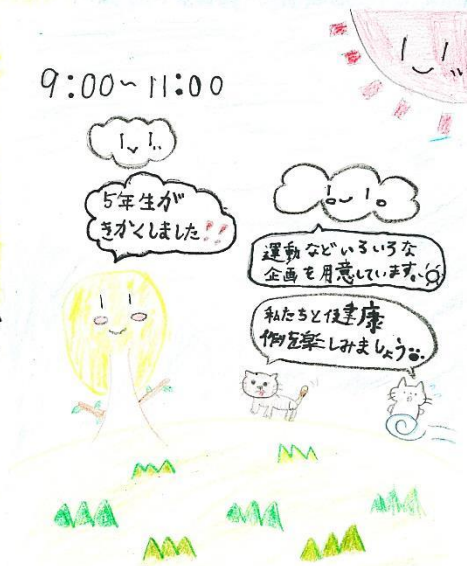 9:00~11:00
5年生が
きかくしました!!
運動などいろいろな
企画を用意しています。
私たちと健康
作りを楽しみましょう